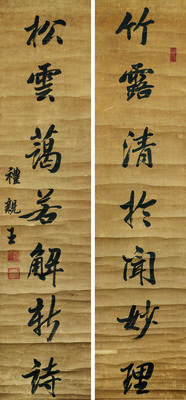 竹露清於聞妙理
松雲藹若解新詩
禮親王